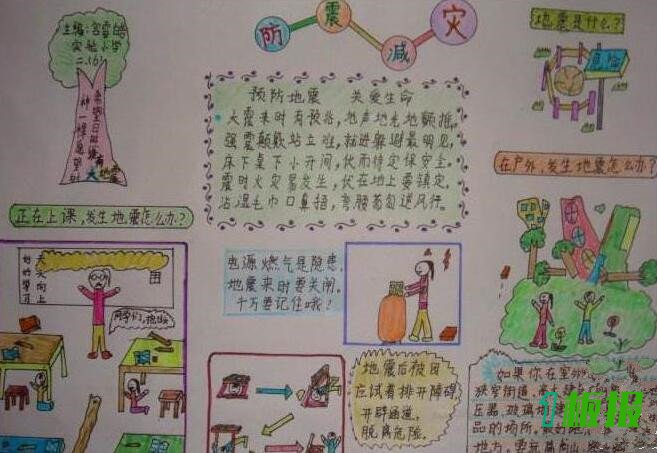 防震减灾
主编:宫雪皓
实验小学
二.(6)
地震是什么?
危险
预防地震 关爱生命
大震来时有预兆,地声地光地颤摇,
强震颠簸站立难,就近躲避最明见,
床下桌下小开间,伏而待定保安全.
震时火灾易发生,伏在地上要镇定,
沾湿毛巾口鼻捂,弯腰匍匐逆风行。
在户外,发生地震怎么办?
正在上课,发生地震怎么办?
好好学习
天天向上
同学们,
电源燃气是隐患,
地震来时要关闭。
千万要记住哦!
地震后被困
应试着排开障碍
开辟通道。
脱离危险。
如果你在室外
狭窄街道
压器、玻璃
品的场所,
地方,
板报